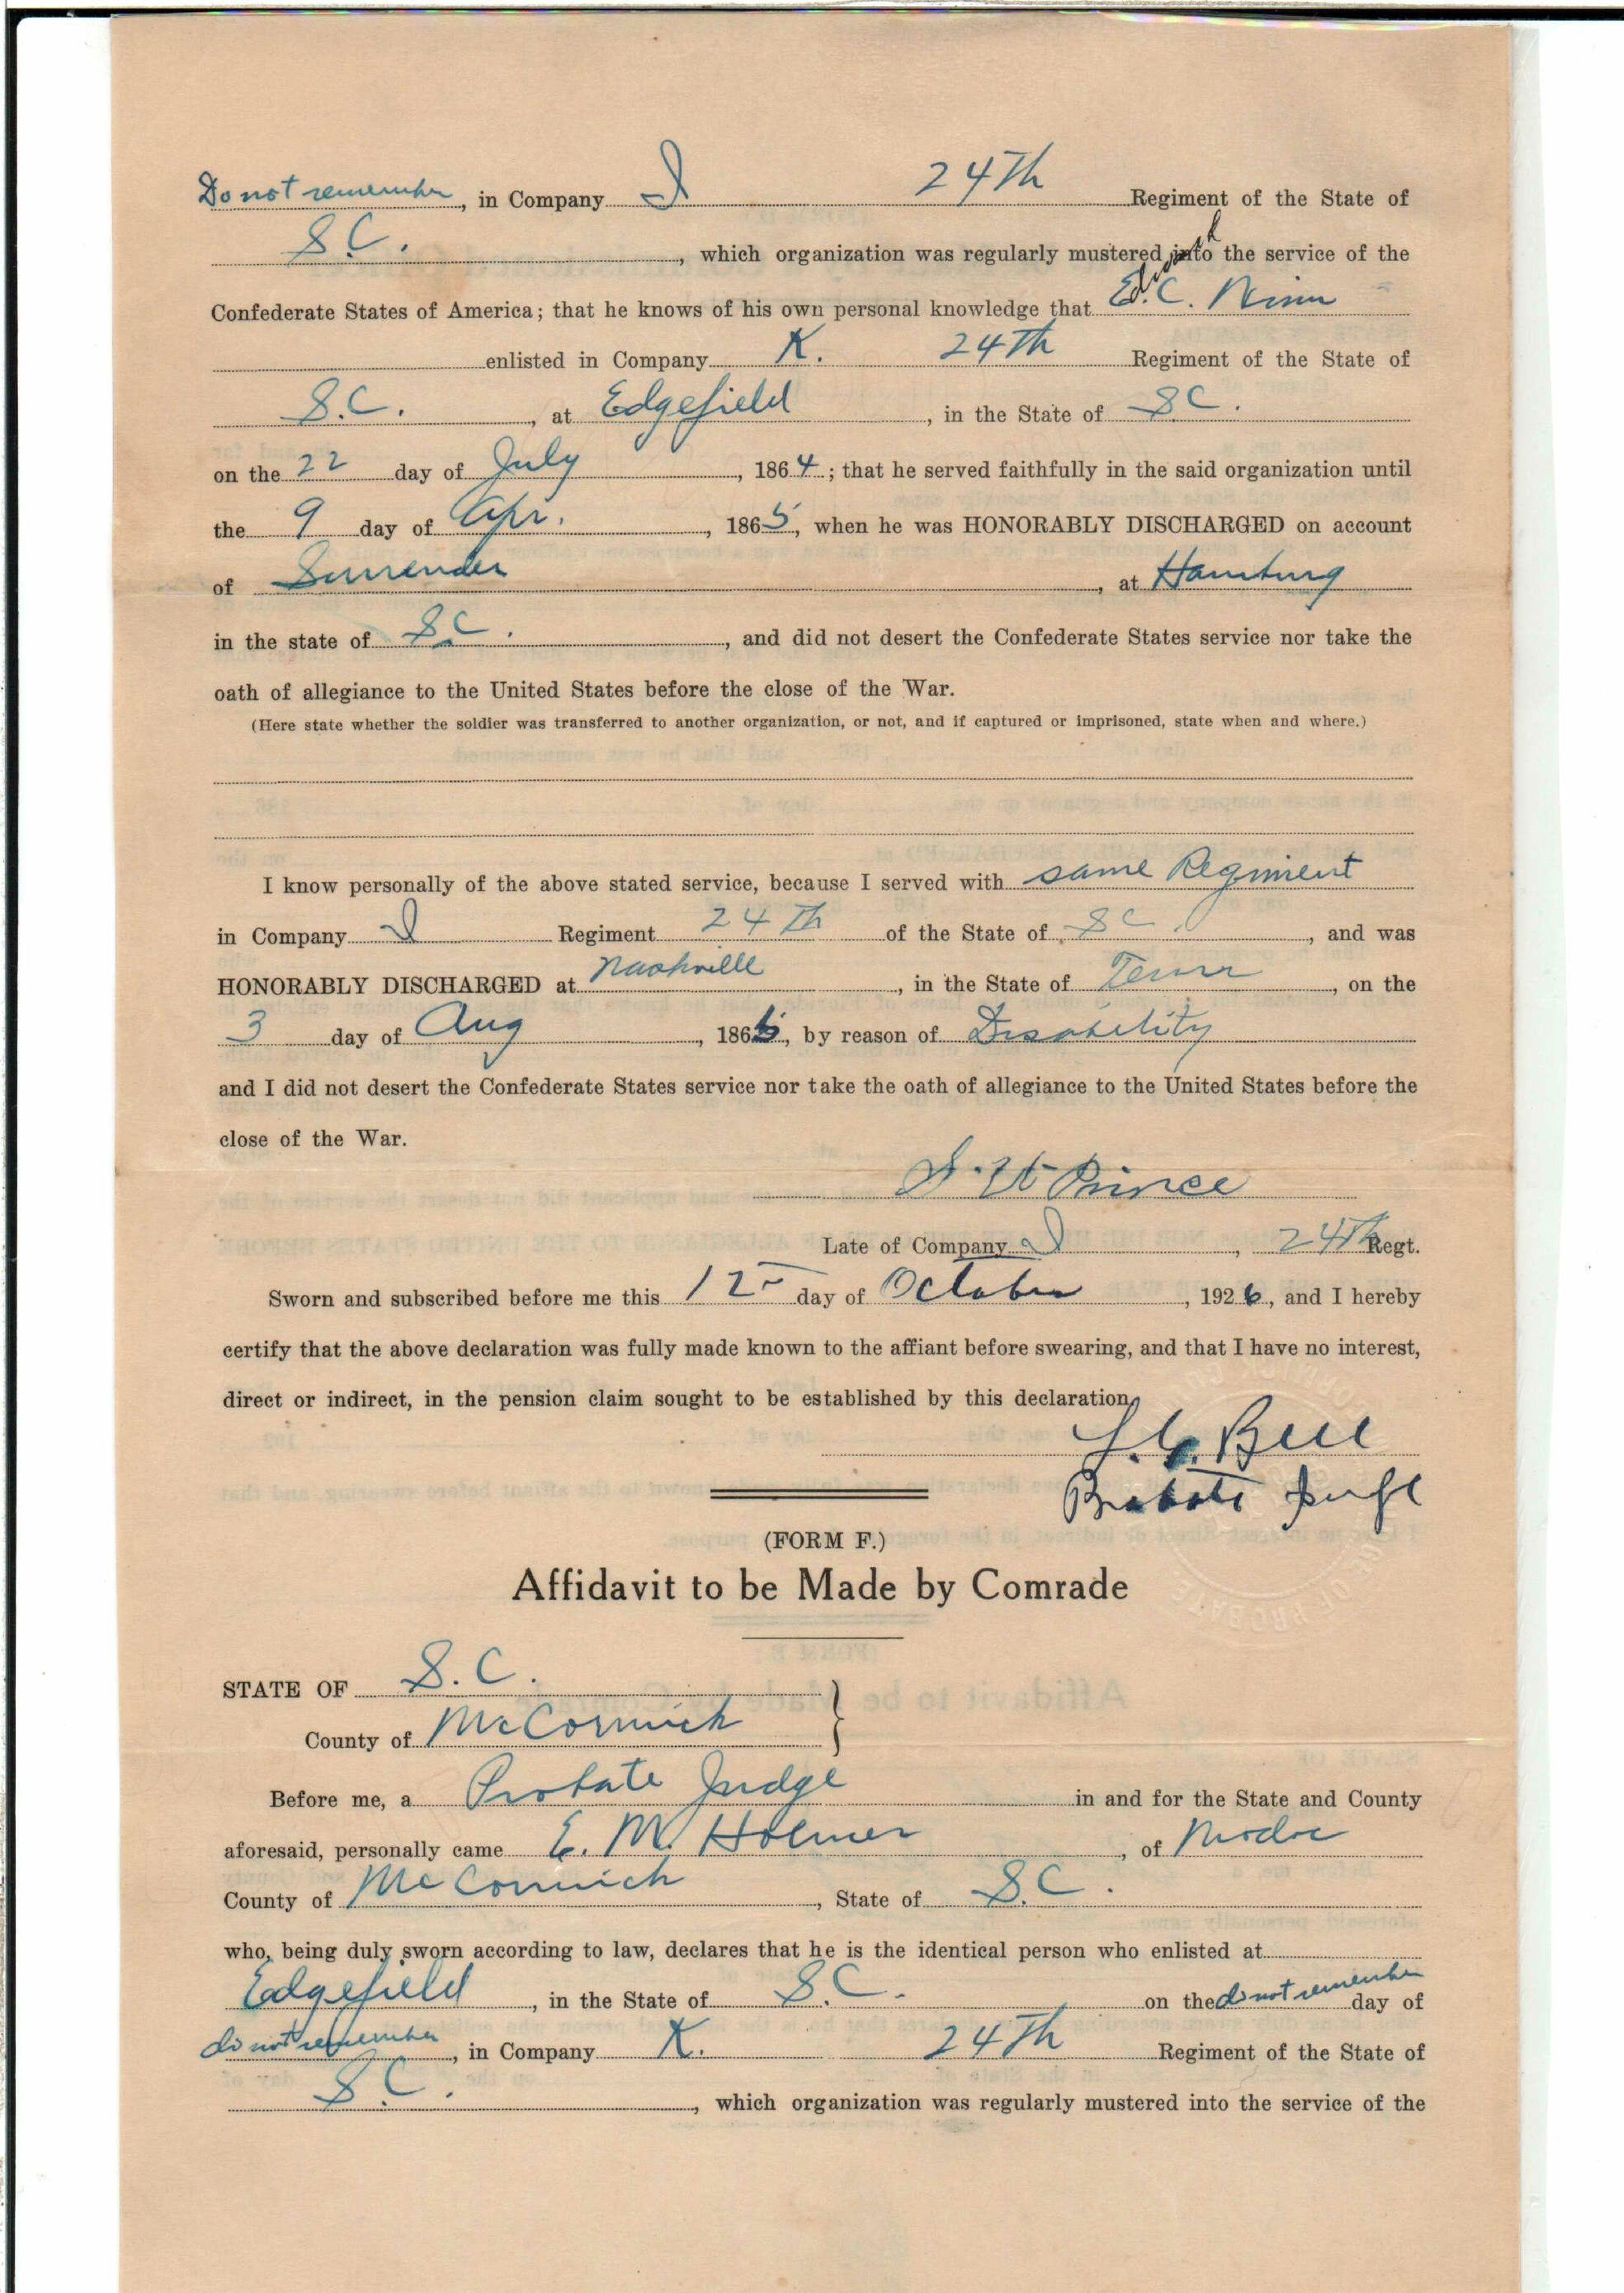 Do not remember, in Company I 24Th Regiment of the State of
S.C., which organization was regularly mustered into the service of the
Confederate States of America; that he knows of his own personal knowledge that Ed. C.
enlisted in Company K. 24Th Regiment of the State of
S.C., at Edgefield, in the State of SC.
on the 22 day of July, 1864; that he served faithfully in the said organization until
the 9 day of Apr., 1865, when he was HONORABLY DISCHARGED on account
of Surrender, at Hamburg
in the state of SC., and did not desert the Confederate States service nor take the
oath of allegiance to the United States before the close of the War.
(Here state whether the soldier was transferred to another organization, or not, and if captured or imprisoned, state when and where.)
I know personally of the above stated service, because I served with same Regiment
in Company I Regiment 24Th of the State of SC., and was
HONORABLY DISCHARGED at Nashville, in the State of Tenn, on the
3 day of Aug, 186, by reason of Disability
and I did not desert the Confederate States service nor take the oath of allegiance to the United States before the
close of the War.
Prince
Late of Company I, 24Th Regt.
Sworn and subscribed before me this 12 day of October, 1926, and I hereby
certify that the above declaration was fully made known to the affiant before swearing, and that I have no interest,
direct or indirect, in the pension claim sought to be established by this declaration.
Bell
Probate Judge
(FORM F.)
Affidavit to be Made by Comrade
STATE OF S.C.
County of McCormick
Before me, a Probate Judge in and for the State and County
aforesaid, personally came E. M. Holmer, of Modoc
County of McCormick, State of S.C.
who, being duly sworn according to law, declares that he is the identical person who enlisted at
Edgefield, in the State of S.C. on the do not remember day of
do not remember, in Company K. 24Th Regiment of the State of
S.C., which organization was regularly mustered into the service of the